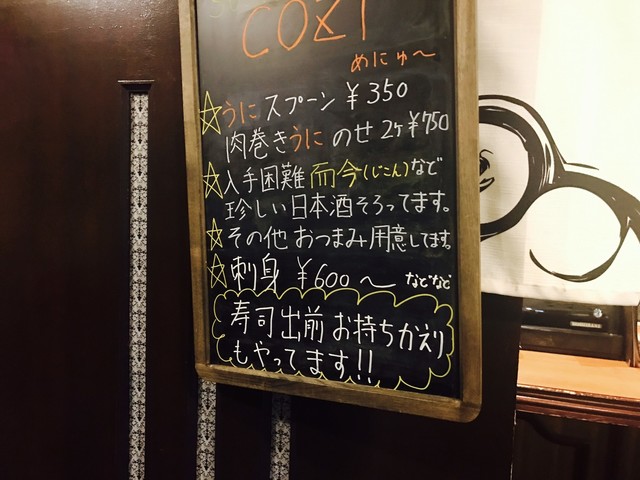 COZY
めにゅ〜
☆うにスプーン ¥350
肉巻きうにのせ 2ヶ¥750
☆入手困難 而今(じこん)など
珍しい日本酒そろってます。
☆その他 おつまみ用意してます。
☆刺身 ¥600〜 などなど
寿司出前 お持ちかえり
もやってます!!